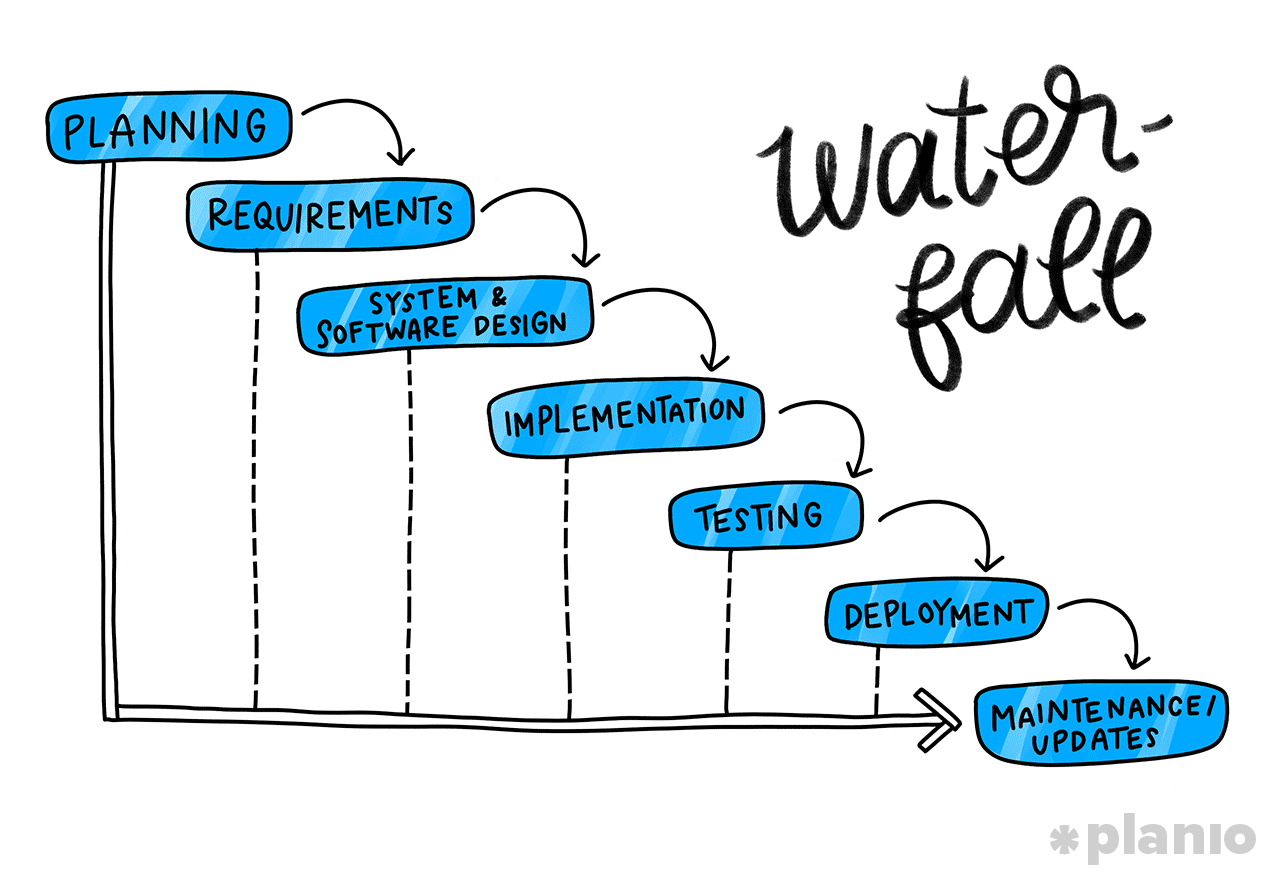 water-
fall
PLANNING
REQUIREMENTS
SYSTEM &
SOFTWARE DESIGN
IMPLEMENTATION
TESTING
DEPLOYMENT
MAINTENANCE/
UPDATES
planio